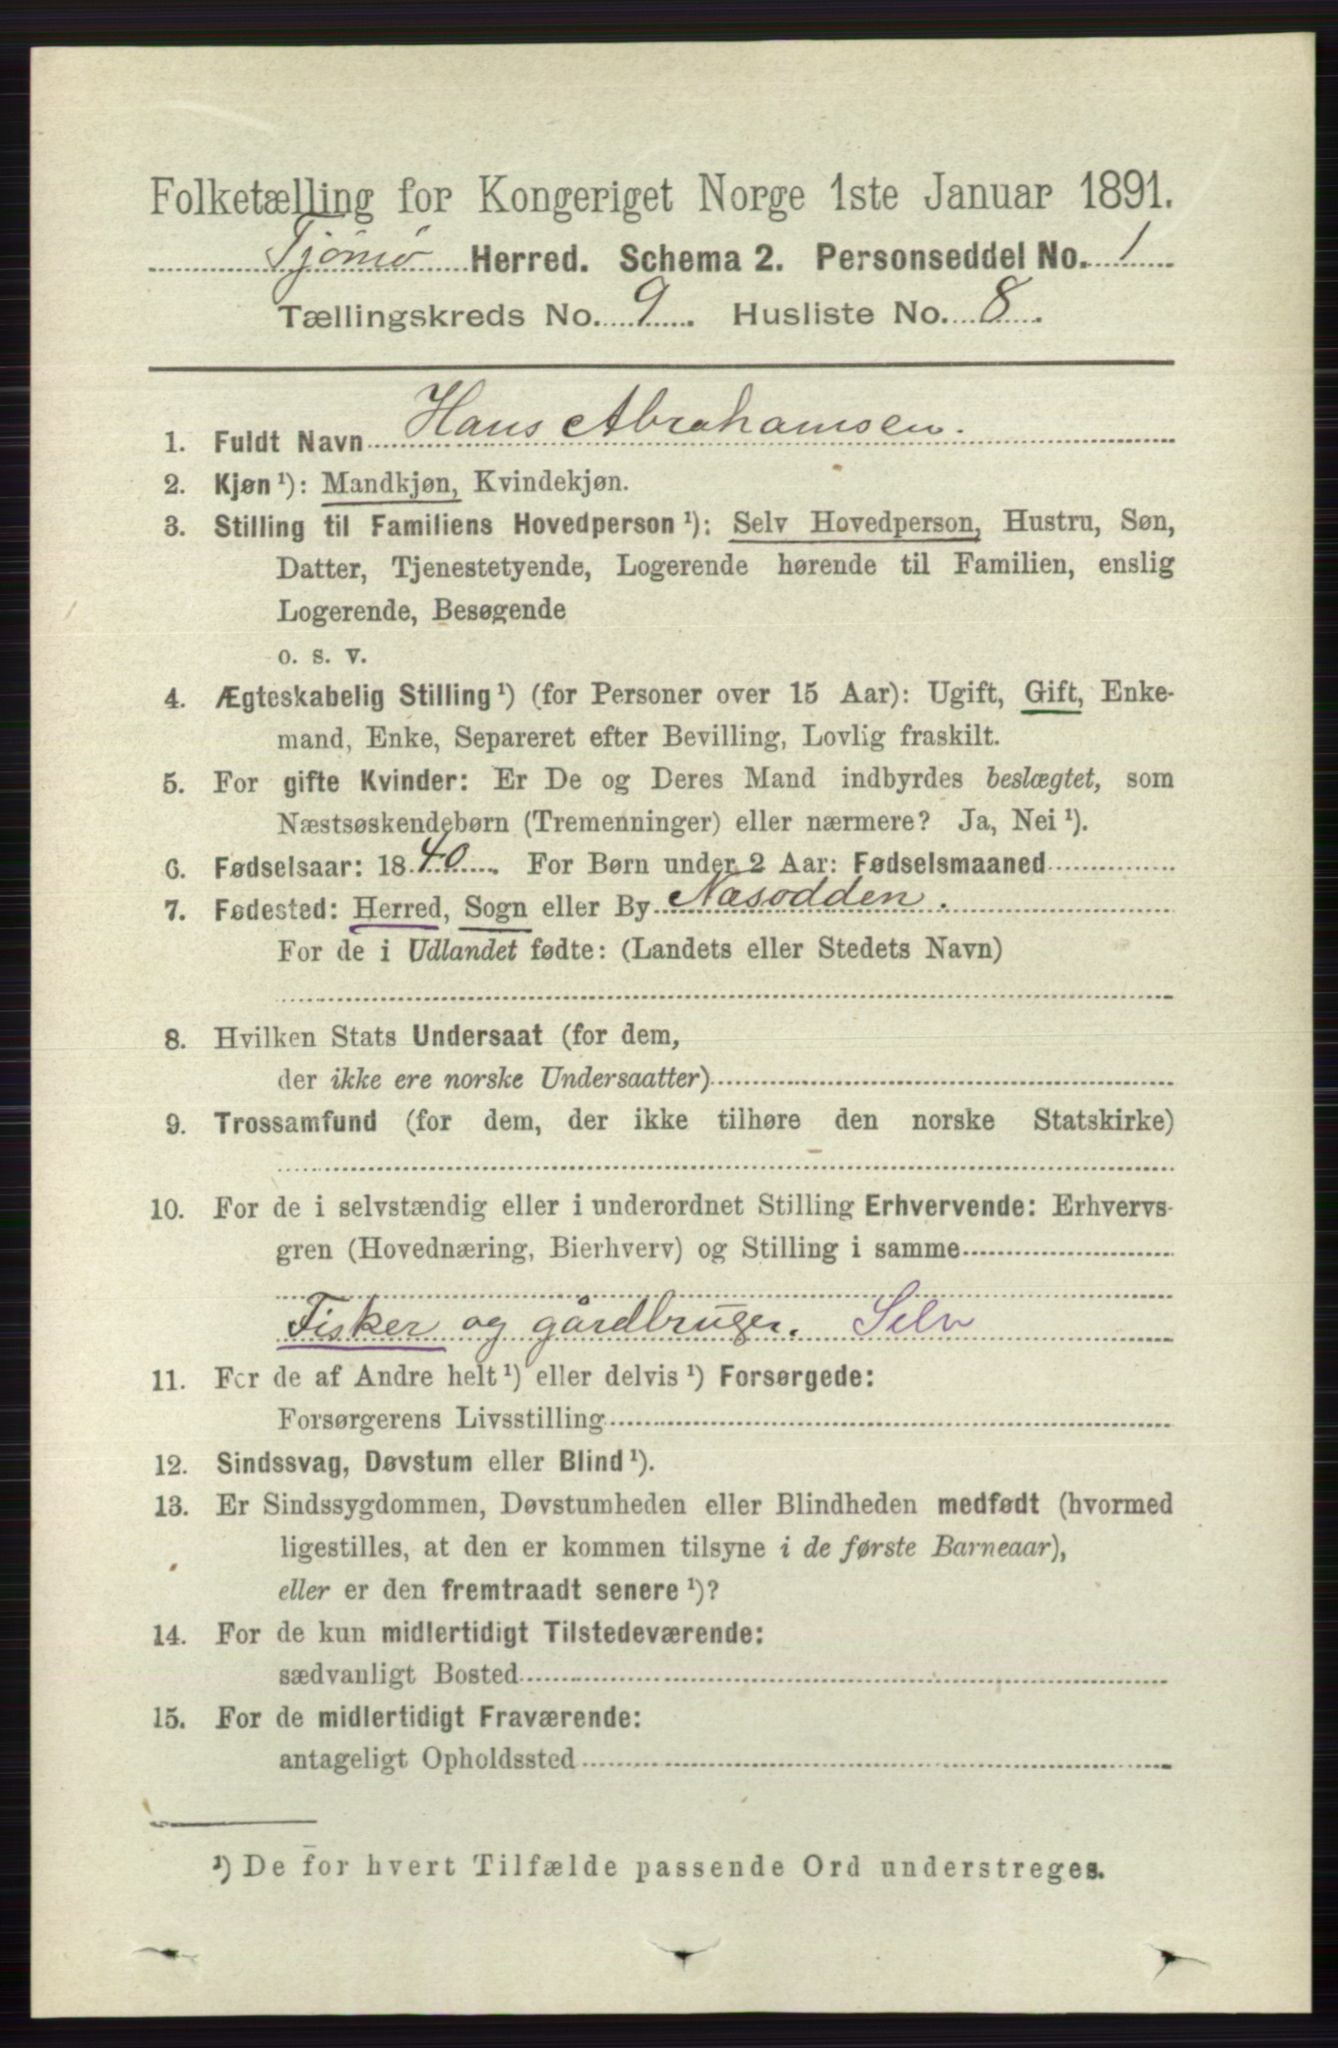 Folketælling for Kongeriget Norge 1ste Januar 1891.
Tjømø Herred. Schema 2. Personseddel No. 1
Tællingskreds No. 9. Husliste No. 8.
1. Fuldt Navn Hans Abrahamsen.
2. Kjøn¹): Mandkjøn, Kvindekjøn.
3. Stilling til Familiens Hovedperson¹): Selv Hovedperson, Hustru, Søn,
Datter, Tjenestetyende, Logerende hørende til Familien, enslig
Logerende, Besøgende
o. s. v.
4. Ægteskabelig Stilling¹) (for Personer over 15 Aar): Ugift, Gift, Enke-
mand, Enke, Separeret efter Bevilling, Lovlig fraskilt.
5. For gifte Kvinder: Er De og Deres Mand indbyrdes beslægtet, som
Næstsøskendebørn (Tremenninger) eller nærmere? Ja, Nei¹).
6. Fødselsaar: 1840. For Børn under 2 Aar: Fødselsmaaned
7. Fødested: Herred, Sogn eller By Næsodden.
For de i Udlandet fødte: (Landets eller Stedets Navn)
8. Hvilken Stats Undersaat (for dem,
der ikke ere norske Undersaatter)
9. Trossamfund (for dem, der ikke tilhøre den norske Statskirke)
10. For de i selvstændig eller i underordnet Stilling Erhvervende: Erhvervs-
gren (Hovednæring, Bierhverv) og Stilling i samme
Fisker og gårdbruger. Selv
11. For de af Andre helt¹) eller delvis¹) Forsørgede:
Forsørgerens Livsstilling
12. Sindssvag, Døvstum eller Blind¹).
13. Er Sindssygdommen, Døvstumheden eller Blindheden medfødt (hvormed
ligestilles, at den er kommen tilsyne i de første Barneaar),
eller er den fremtraadt senere¹)?
14. For de kun midlertidigt Tilstedeværende:
sædvanligt Bosted
15. For de midlertidigt Fraværende:
antageligt Opholdssted
¹) De for hvert Tilfælde passende Ord understreges.